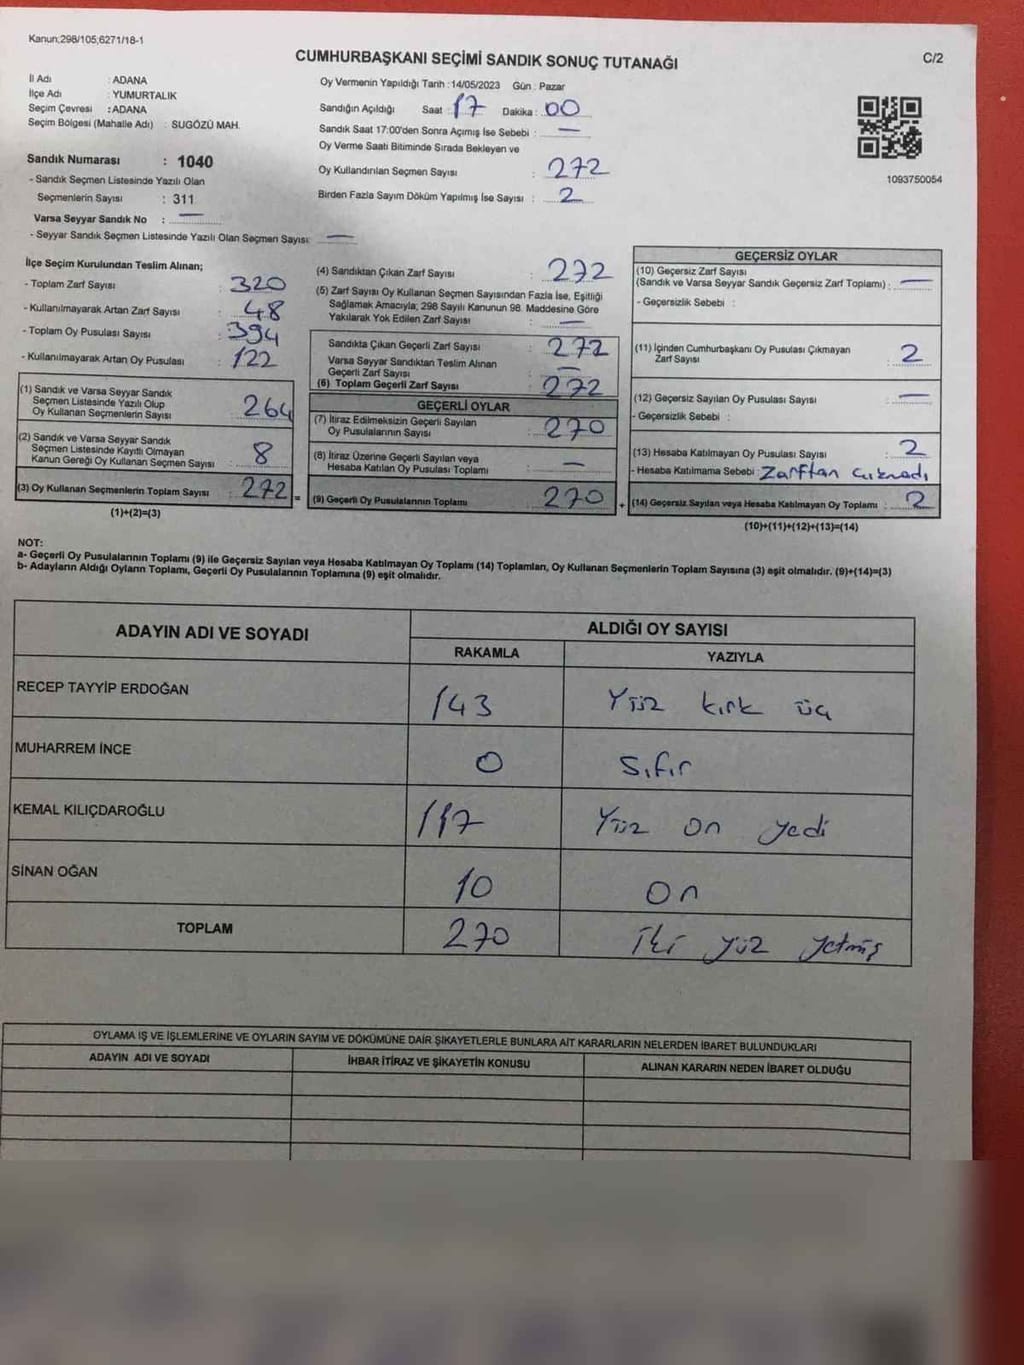 Kanun;298/105;6271/18-1
CUMHURBAŞKANI SEÇİMİ SANDIK SONUÇ TUTANAĞI
C/2
İl Adı : ADANA
İlçe Adı : YUMURTALIK
Seçim Çevresi : ADANA
Seçim Bölgesi (Mahalle Adı) : SUGÖZÜ MAH.
Sandık Numarası : 1040
- Sandık Seçmen Listesinde Yazılı Olan
Seçmenlerin Sayısı : 311
Varsa Seyyar Sandık No : —
- Seyyar Sandık Seçmen Listesinde Yazılı Olan Seçmen Sayısı: —
Oy Vermenin Yapıldığı Tarih : 14/05/2023 Gün : Pazar
Sandığın Açıldığı Saat : 17 Dakika : 00
Sandık Saat 17:00'den Sonra Açımış İse Sebebi : —
Oy Verme Saati Bitiminde Sırada Bekleyen ve
Oy Kullandırılan Seçmen Sayısı : 272
Birden Fazla Sayım Döküm Yapılmış İse Sayısı : 2
1093750054
İlçe Seçim Kurulundan Teslim Alınan;
- Toplam Zarf Sayısı : 320
- Kullanılmayarak Artan Zarf Sayısı : 48
- Toplam Oy Pusulası Sayısı : 394
- Kullanılmayarak Artan Oy Pusulası : 122
(1) Sandık ve Varsa Seyyar Sandık
Seçmen Listesinde Yazılı Olup
Oy Kullanan Seçmenlerin Sayısı : 264
(2) Sandık ve Varsa Seyyar Sandık
Seçmen Listesinde Kayıtlı Olmayan
Kanun Gereği Oy Kullanan Seçmen Sayısı : 8
(3) Oy Kullanan Seçmenlerin Toplam Sayısı : 272 =
(1)+(2)=(3)
(4) Sandıktan Çıkan Zarf Sayısı : 272
(5) Zarf Sayısı Oy Kullanan Seçmen Sayısından Fazla İse, Eşitliği
Sağlamak Amacıyla; 298 Sayılı Kanunun 98. Maddesine Göre
Yakılarak Yok Edilen Zarf Sayısı : —
Sandıkta Çıkan Geçerli Zarf Sayısı : 272
Varsa Seyyar Sandıktan Teslim Alınan
Geçerli Zarf Sayısı : —
(6) Toplam Geçerli Zarf Sayısı : 272
GEÇERLİ OYLAR
(7) İtiraz Edilmeksizin Geçerli Sayılan
Oy Pusulalarının Sayısı : 270
(8) İtiraz Üzerine Geçerli Sayılan veya
Hesaba Katılan Oy Pusulası Toplamı : —
(9) Geçerli Oy Pusulalarının Toplamı : 270 +
GEÇERSİZ OYLAR
(10) Geçersiz Zarf Sayısı
(Sandık ve Varsa Seyyar Sandık Geçersiz Zarf Toplamı) : —
- Geçersizlik Sebebi :
(11) İçinden Cumhurbaşkanı Oy Pusulası Çıkmayan
Zarf Sayısı : 2
(12) Geçersiz Sayılan Oy Pusulası Sayısı : —
- Geçersizlik Sebebi :
(13) Hesaba Katılmayan Oy Pusulası Sayısı : 2
- Hesaba Katılmama Sebebi : Zarftan çıkmadı
(14) Geçersiz Sayılan veya Hesaba Katılmayan Oy Toplamı : 2
(10)+(11)+(12)+(13)=(14)
NOT:
a- Geçerli Oy Pusulalarının Toplamı (9) ile Geçersiz Sayılan veya Hesaba Katılmayan Oy Toplamı (14) Toplamları, Oy Kullanan Seçmenlerin Toplam Sayısına (3) eşit olmalıdır. (9)+(14)=(3)
b- Adayların Aldığı Oyların Toplamı, Geçerli Oy Pusulalarının Toplamına (9) eşit olmalıdır.
ADAYIN ADI VE SOYADI
ALDIĞI OY SAYISI
RAKAMLA YAZIYLA
RECEP TAYYİP ERDOĞAN 143 Yüz kırk üç
MUHARREM İNCE 0 Sıfır
KEMAL KILIÇDAROĞLU 117 Yüz on yedi
SİNAN OĞAN 10 On
TOPLAM 270 İki yüz yetmiş
OYLAMA İŞ VE İŞLEMLERİNE VE OYLARIN SAYIM VE DÖKÜMÜNE DAİR ŞİKAYETLERLE BUNLARA AİT KARARLARIN NELERDEN İBARET BULUNDUKLARI
ADAYIN ADI VE SOYADI İHBAR İTİRAZ VE ŞİKAYETİN KONUSU ALINAN KARARIN NEDEN İBARET OLDUĞU